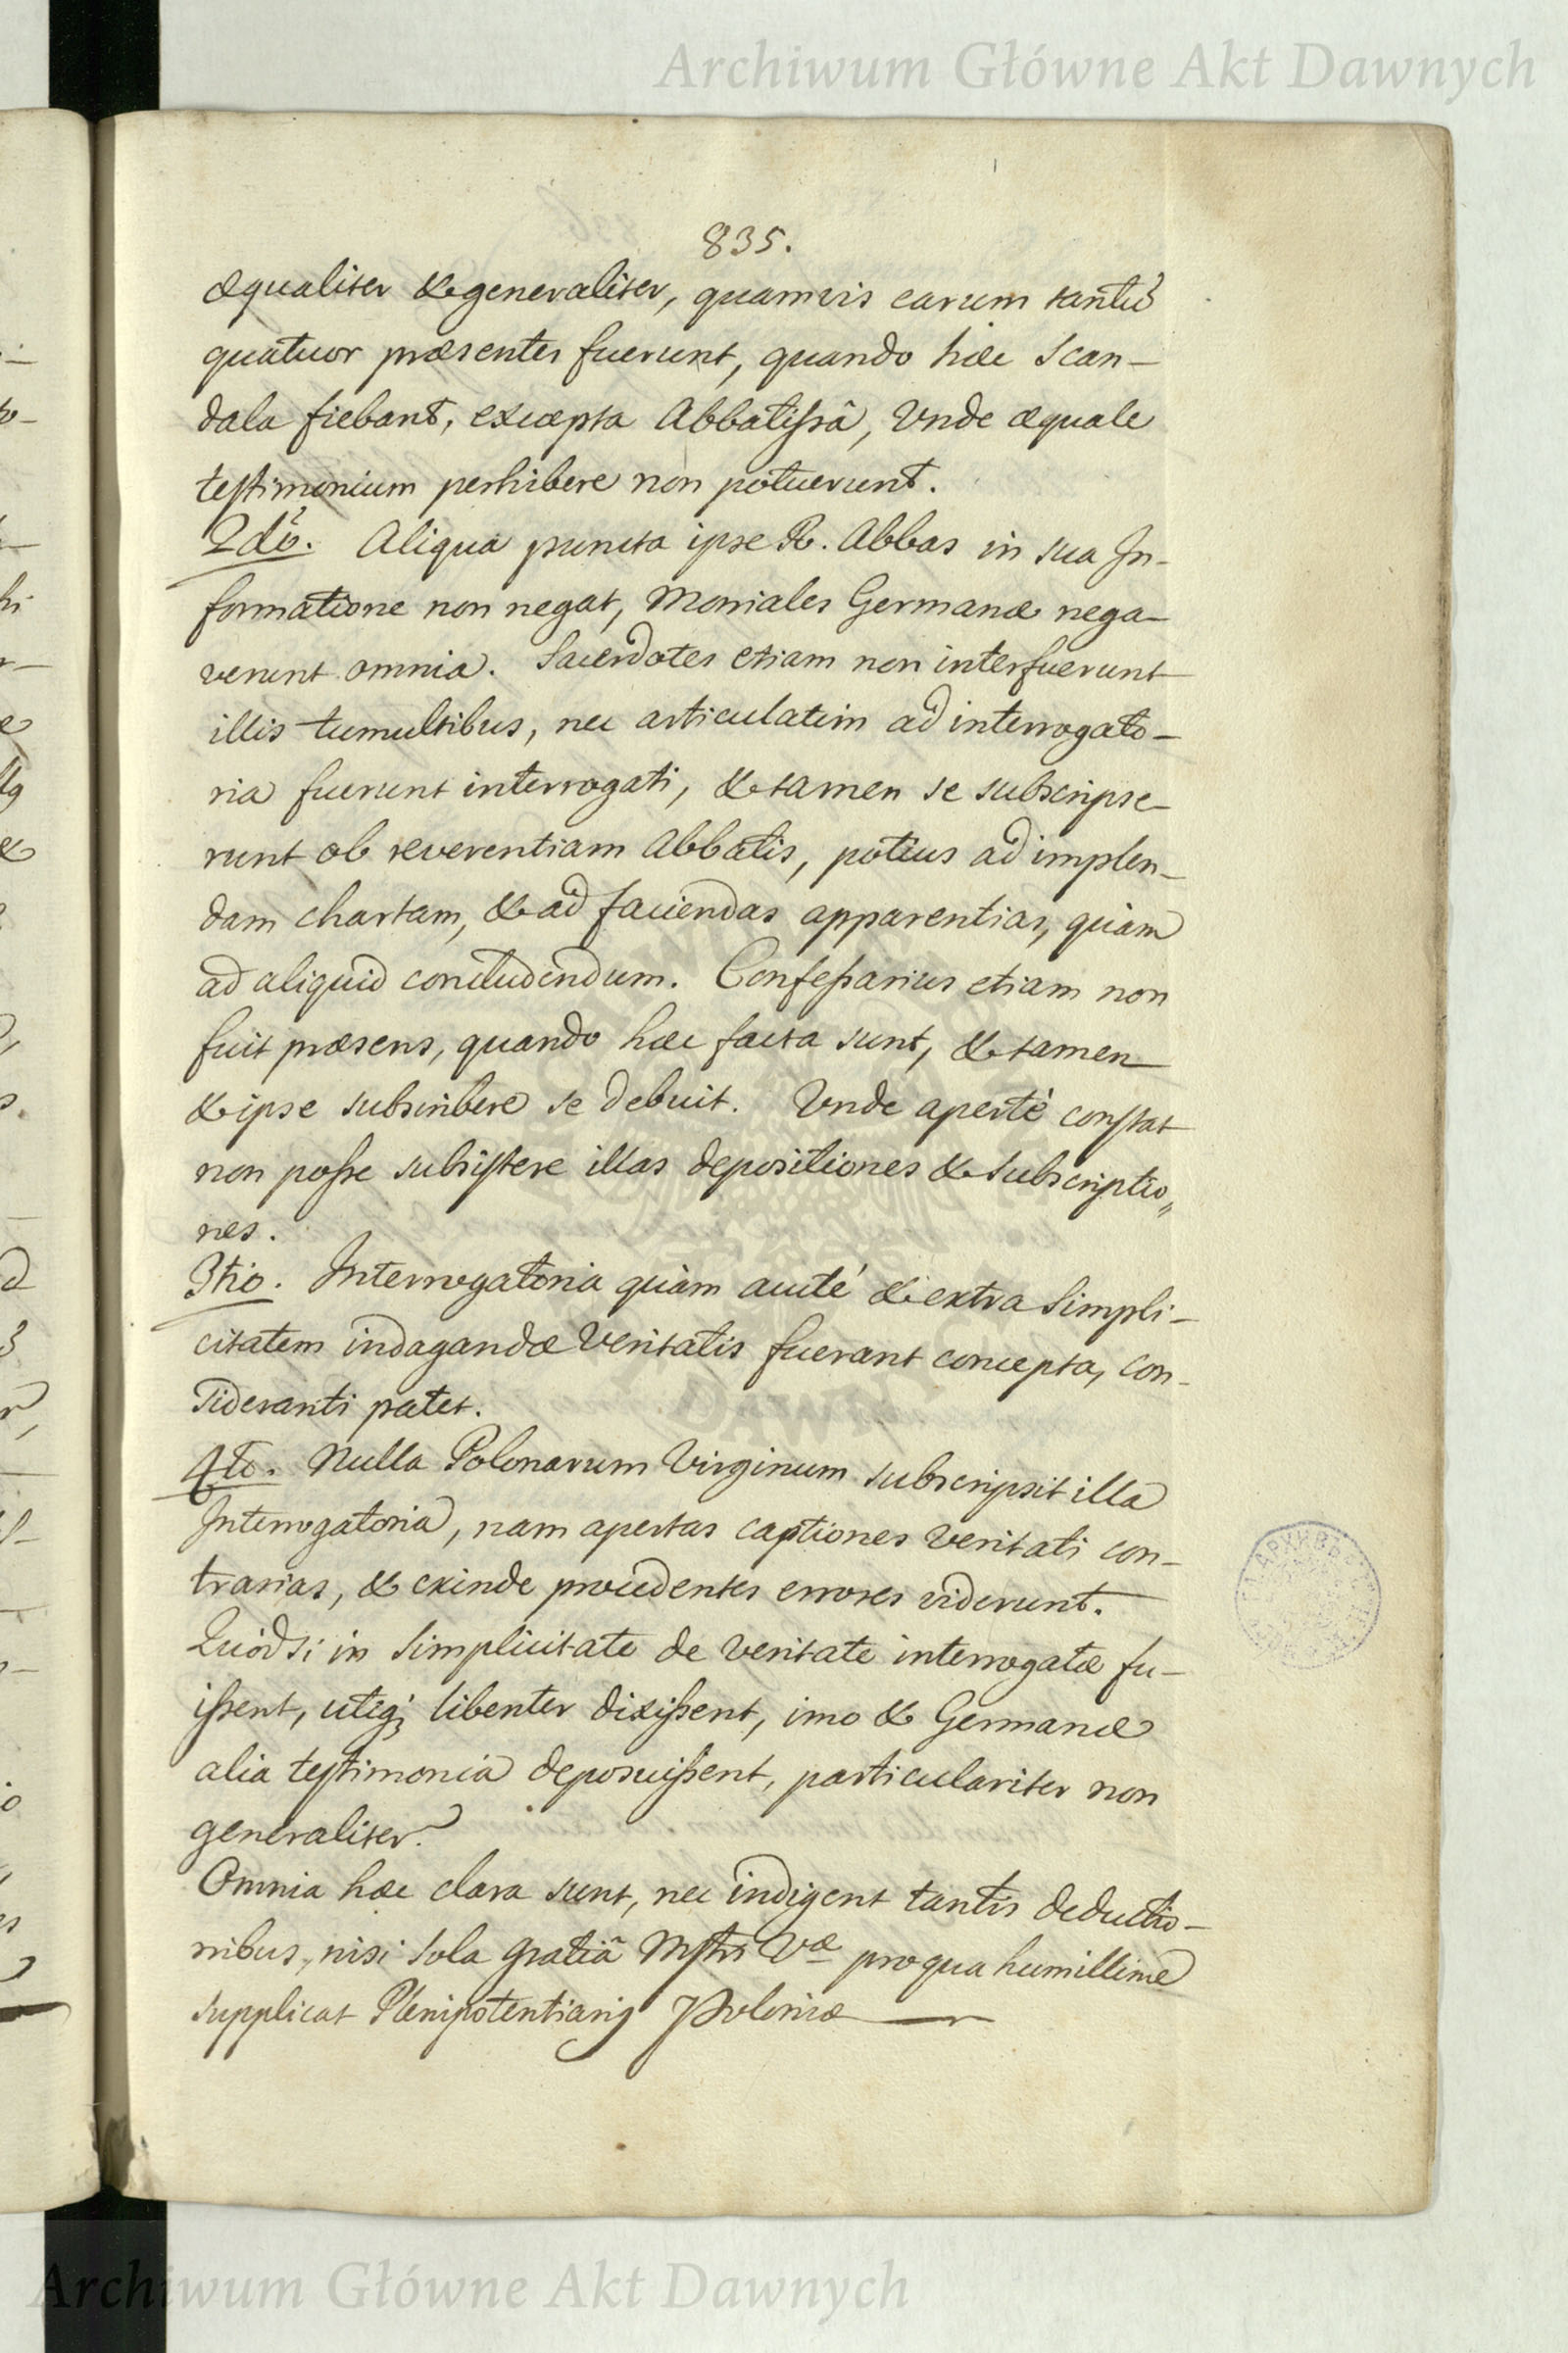 Archiwum Główne Akt Dawnych
835.
æqualiter & generaliter, quamvis earum tantũ
quatuor præsentes fuerunt, quando hæc Scan-
dala fiebant, excæpta Abbatissâ, Unde æquale
testimonium perhibere non potuerunt.
2dò. Aliqua puncta ipse R. Abbas in sua In-
formatione non negat, Moniales Germanæ nega-
verunt omnia. Sacerdotes etiam non interfuerunt
illis tumultibus, nec articulatim ad interrogato-
ria fuerunt interrogati, & tamen se subscripse-
runt ob reverentiam Abbatis, potius ad implen-
dam chartam, & ad faciendas apparentias, quàm
ad aliquid concludendum. Confessarius etiam non
fuit præsens, quando hæc facta sunt, & tamen
& ipse subscribere se debuit. Unde apertè constat
non posse subsistere illas depositiones & Subscriptio„
nes.
3tio. Interrogatoria quàm acuté & extra Simpli-
citatem indagandæ Veritatis fuerant concepta, con-
sideranti patet.
4to. Nulla Polonarum Virginum subscripsit illa
Interrogatoria, nam apertas captiones Veritati con-
trarias, & exinde procedentes errores viderunt.
Quòd si in Simplicitate de Veritate interrogatæ fu-
issent, utiq; libenter dixissent, imo & Germanæ
alia testimonia deposuissent, particulariter non
generaliter.
Omnia hæc clara sunt, nec indigent tantis deductio-
nibus, nisi sola Gratiâ Mstris Væ pro qua humillime
supplicat Plenipotentiariꝰ Poloniæ
Archiwum Główne Akt Dawnych